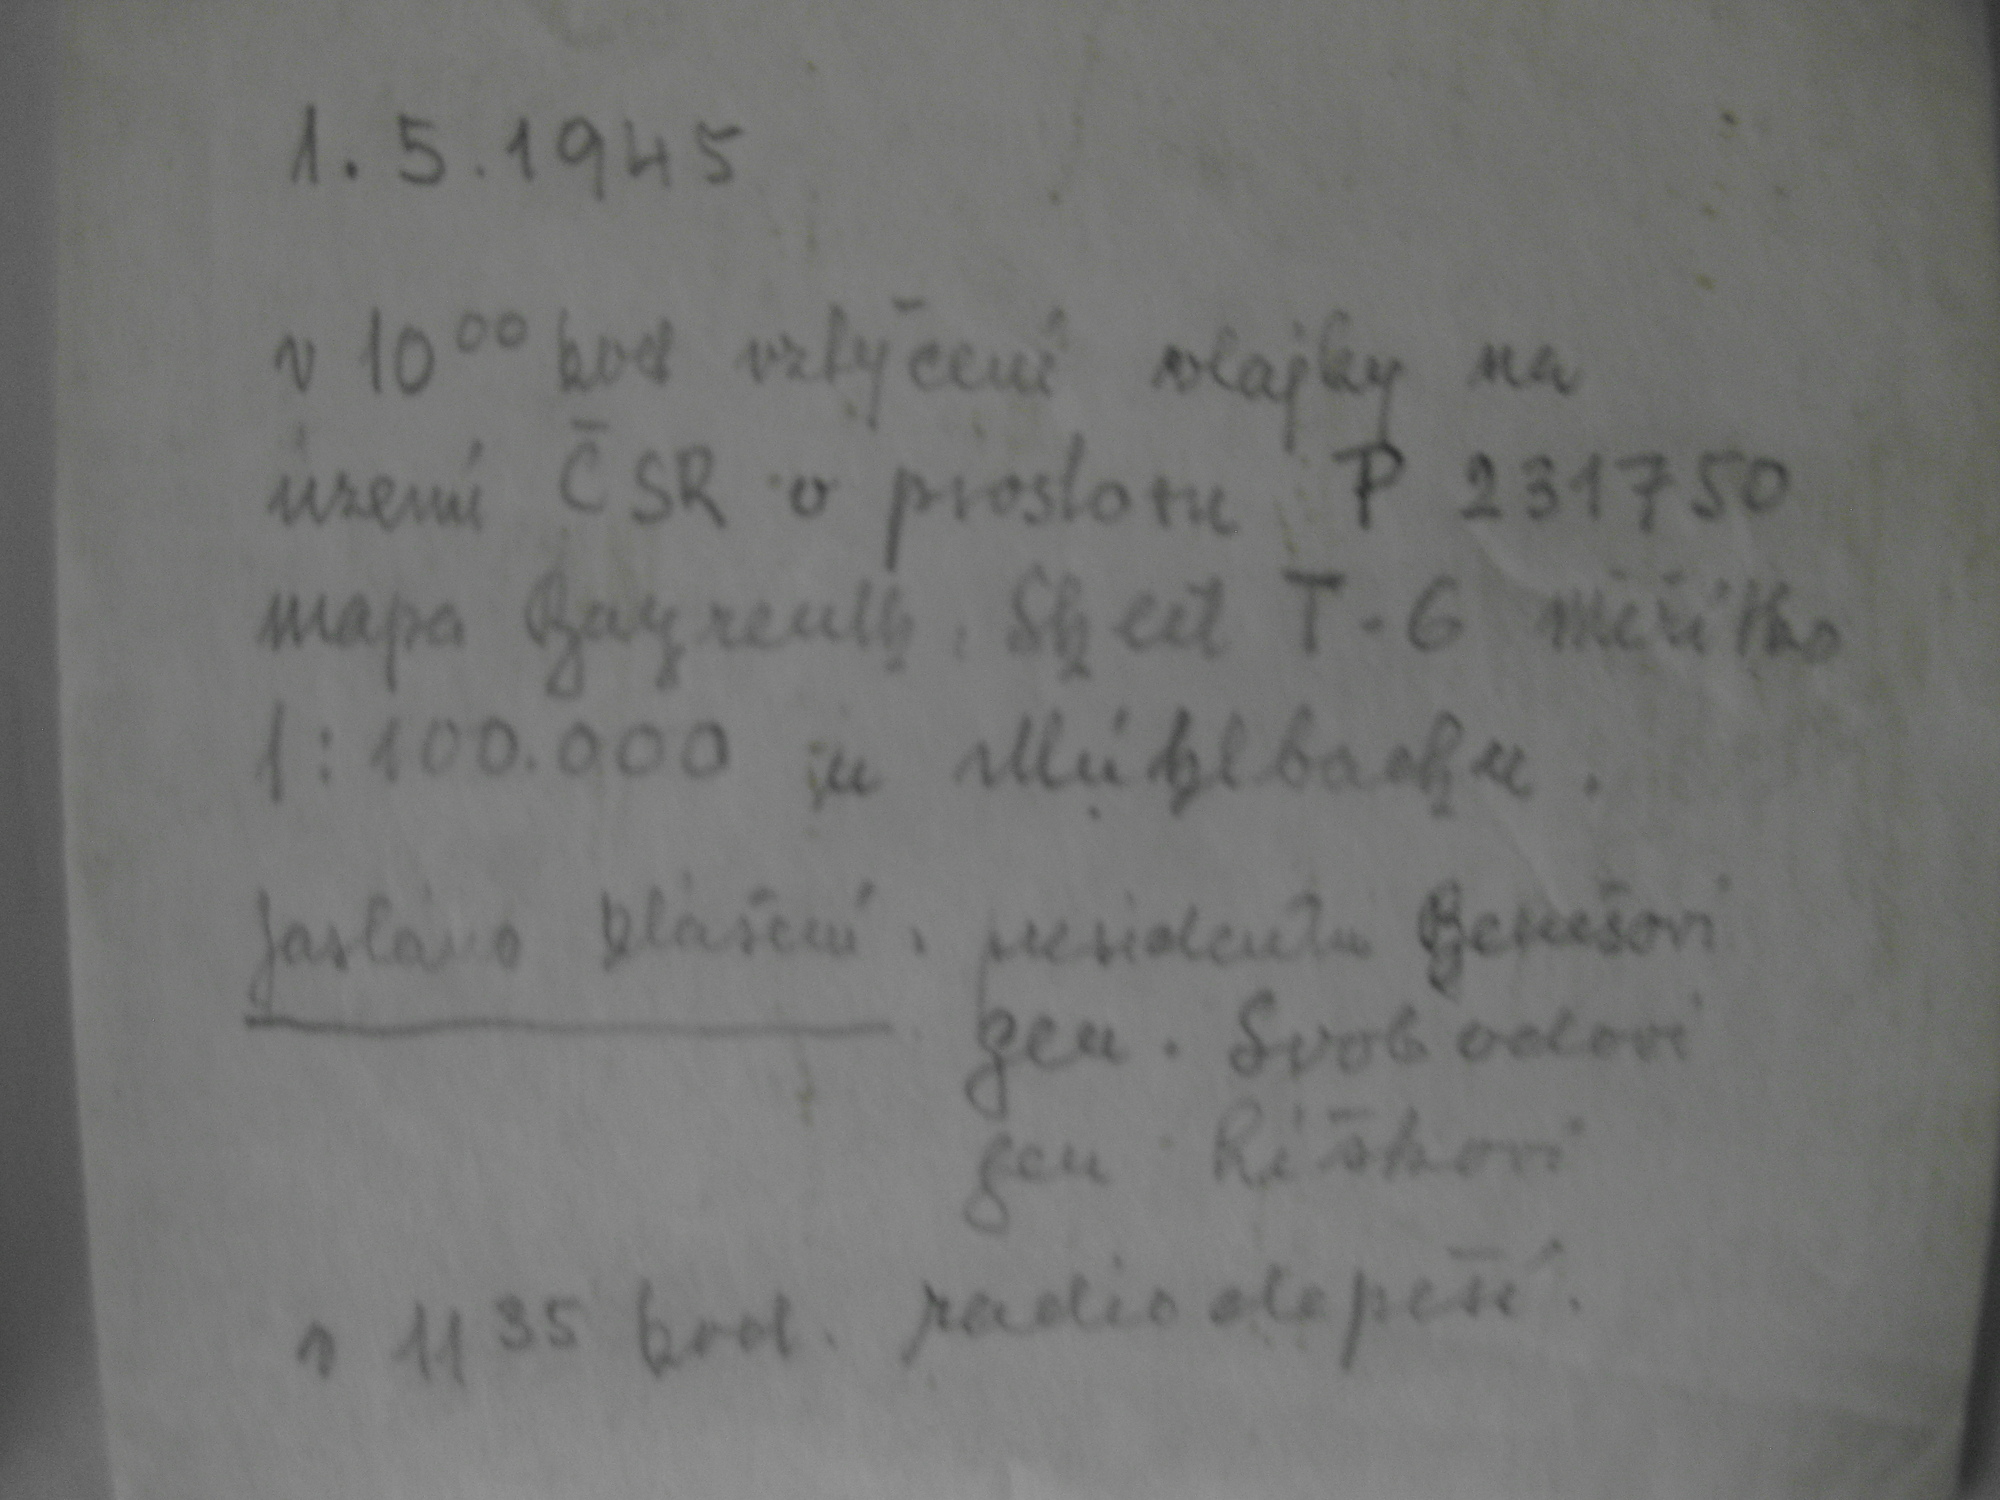 1.5.1945
v 10⁰⁰ hod vztyčení vlajky na
území ČSR v prostoru P 231750
mapa Bayreuth, Sheet T-6 měřítko
1:100.000 u Mühlbachu.
Zasláno hlášení: presidentu Benešovi
gen. Svobodovi
gen
v 11³⁵ hod. radiodepeší.